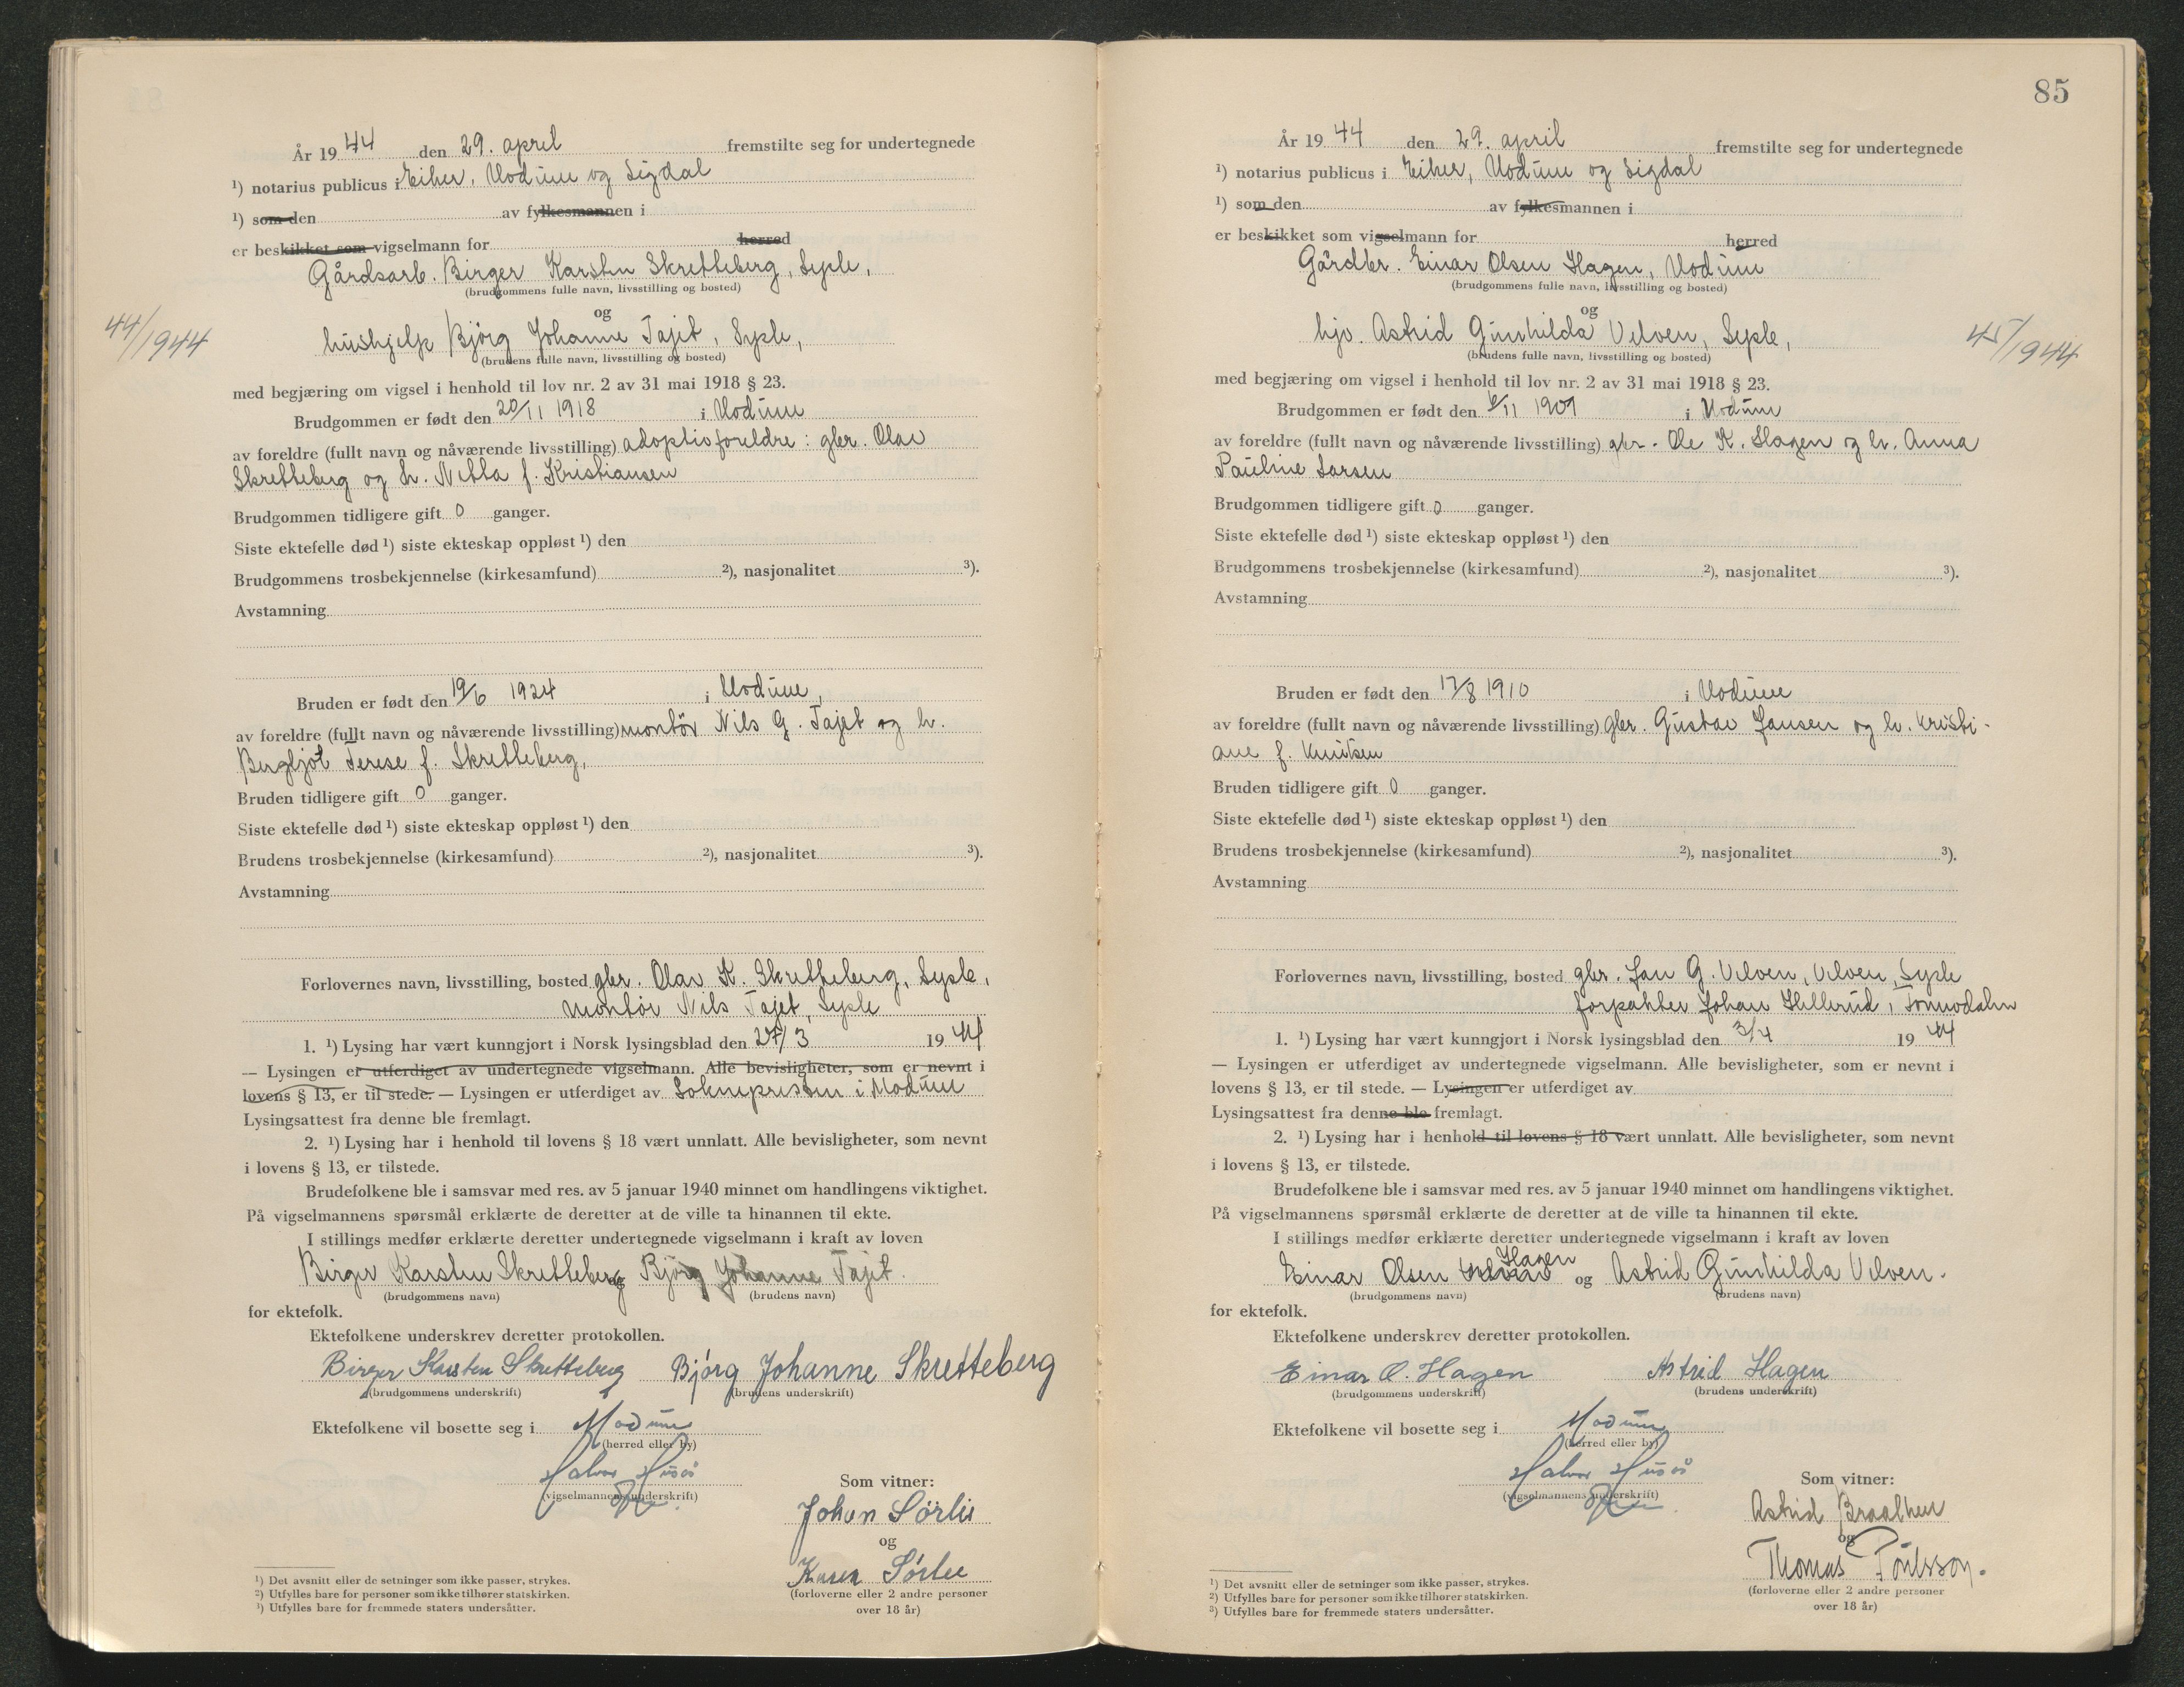 År 19 44 den 29. april fremstilte seg for undertegnede
¹) notarius publicus i Eiker, Modum og Sigdal
¹) som den av fylkesmannen i
er beskikket som vigselmann for herred
Gårdsarb. Birger Karsten Skretteberg, Sysle,
(brudgommens fulle navn, livsstilling og bosted)
og
44/1944
hushjelp Bjørg Johanne Tajet, Sysle,
(brudens fulle navn, livsstilling og bosted)
med begjæring om vigsel i henhold til lov nr. 2 av 31 mai 1918 § 23.
Brudgommen er født den 20/11 1918 i Modum
av foreldre (fullt navn og nåværende livsstilling) adoptivforeldre: gbr. Olav
Skretteberg og h. Netta f. Kristiansen
Brudgommen tidligere gift 0 ganger.
Siste ektefelle død ¹) siste ekteskap oppløst ¹) den
Brudgommens trosbekjennelse (kirkesamfund) ²), nasjonalitet ³).
Avstamning
Bruden er født den 19/6 1924 i Modum,
av foreldre (fullt navn og nåværende livsstilling) montör Nils G. Tajet og h.
Bergljot Terese f. Skretteberg,
Bruden tidligere gift 0 ganger.
Siste ektefelle død ¹) siste ekteskap oppløst ¹) den
Brudens trosbekjennelse (kirkesamfund) ²), nasjonalitet ³).
Avstamning
Forlovernes navn, livsstilling, bosted gbr. Olav K. Skretteberg, Sysle,
montör Nils Tajet, Sysle
1. ¹) Lysing har vært kunngjort i Norsk lysingsblad den 27/3 19 44
— Lysingen er utferdiget av undertegnede vigselmann. Alle bevisligheter, som er nevnt i
lovens § 13, er til stede. — Lysingen er utferdiget av Soknepresten i Modum
Lysingsattest fra denne ble fremlagt.
2. ¹) Lysing har i henhold til lovens § 18 vært unnlatt. Alle bevisligheter, som nevnt
i lovens § 13, er tilstede.
Brudefolkene ble i samsvar med res. av 5 januar 1940 minnet om handlingens viktighet.
På vigselmannens spørsmål erklærte de deretter at de ville ta hinannen til ekte.
I stillings medfør erklærte deretter undertegnede vigselmann i kraft av loven
Birger Karsten Skretteberg Bjørg Johanne Tajet.
(brudgommens navn) (brudens navn)
for ektefolk.
Ektefolkene underskrev deretter protokollen.
Birger Karsten Skretteberg Bjørg Johanne Skretteberg
(brudgommens underskrift) (brudens underskrift)
Ektefolkene vil bosette seg i Modum
(herred eller by)
Halvor
(vigselmannens underskrift)
Som vitner:
Johan Sørlie
og
Karen Sørlie
(forloverne eller 2 andre personer
over 18 år)
¹) Det avsnitt eller de setninger som ikke passer, strykes.
²) Utfylles bare for personer som ikke tilhører statskirken.
³) Utfylles bare for fremmede staters undersåtter.
85
År 19 44 den 29. april fremstilte seg for undertegnede
¹) notarius publicus i Eiker, Modum og Sigdal
¹) som den av fylkesmannen i
er beskikket som vigselmann for herred
Gårdbr. Einar Olsen Hagen, Modum
(brudgommens fulle navn, livsstilling og bosted)
og
hjv. Astrid Gunhilda Velven, Sysle,
45/1944
(brudens fulle navn, livsstilling og bosted)
med begjæring om vigsel i henhold til lov nr. 2 av 31 mai 1918 § 23.
Brudgommen er født den 6/11 1909 i Modum
av foreldre (fullt navn og nåværende livsstilling) gbr. Ole K. Hagen og h. Anna
Pauline Larsen
Brudgommen tidligere gift 0 ganger.
Siste ektefelle død ¹) siste ekteskap oppløst ¹) den
Brudgommens trosbekjennelse (kirkesamfund) ²), nasjonalitet ³).
Avstamning
Bruden er født den 17/8 1910 i Modum
av foreldre (fullt navn og nåværende livsstilling) gbr. Gustav Jansen og h. Kristi-
ane f. Knutsen
Bruden tidligere gift 0 ganger.
Siste ektefelle død ¹) siste ekteskap oppløst ¹) den
Brudens trosbekjennelse (kirkesamfund) ²), nasjonalitet ³).
Avstamning
Forlovernes navn, livsstilling, bosted gbr. Jan G. Velven, Velven, Sysle
forpakter Johan Hellerud,
1. ¹) Lysing har vært kunngjort i Norsk lysingsblad den 3/4 19 44
— Lysingen er utferdiget av undertegnede vigselmann. Alle bevisligheter, som er nevnt i
lovens § 13, er til stede. — Lysingen er utferdiget av
Lysingsattest fra denne ble fremlagt.
2. ¹) Lysing har i henhold til lovens § 18 vært unnlatt. Alle bevisligheter, som nevnt
i lovens § 13, er tilstede.
Brudefolkene ble i samsvar med res. av 5 januar 1940 minnet om handlingens viktighet.
På vigselmannens spørsmål erklærte de deretter at de ville ta hinannen til ekte.
I stillings medfør erklærte deretter undertegnede vigselmann i kraft av loven
Einar Olsen Hagen og Astrid Gunhilda Velven.
(brudgommens navn) (brudens navn)
for ektefolk.
Ektefolkene underskrev deretter protokollen.
Einar O. Hagen Astrid Hagen
(brudgommens underskrift) (brudens underskrift)
Ektefolkene vil bosette seg i Modum
(herred eller by)
Halvor
(vigselmannens underskrift)
Som vitner:
Astrid Braathen
og
Thomas
(forloverne eller 2 andre personer
over 18 år)
¹) Det avsnitt eller de setninger som ikke passer, strykes.
²) Utfylles bare for personer som ikke tilhører statskirken.
³) Utfylles bare for fremmede staters undersåtter.